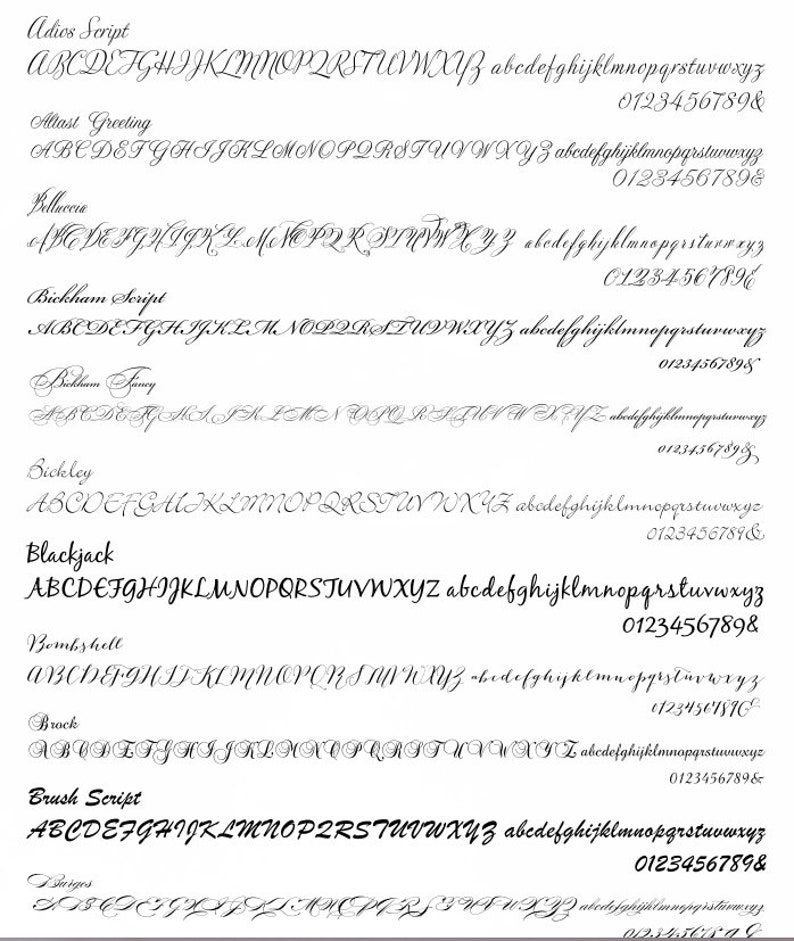 Adios Script
ABCDEFGHIJKLMNOPQRSTUVWXYZ abcdefghijklmnopqrstuvwxyz
0123456789&
Altast Greeting
ABCDEFGHIJKLMNOPQRSTUVWXYZ abcdefghijklmnopqrstuvwxyz
0123456789&
Belluccia
ABCDEFGHIJKLMNOPQRSTUVWXYZ abcdefghijklmnopqrstuvwxyz
0123456789&
Bickham Script
ABCDEFGHIJKLMNOPQRSTUVWXYZ abcdefghijklmnopqrstuvwxyz
0123456789&
Bickham Fancy
ABCDEFGHIJKLMNOPQRSTUVWXYZ abcdefghijklmnopqrstuvwxyz
0123456789&
Bickley
ABCDEFGHIJKLMNOPQRSTUVWXYZ abcdefghijklmnopqrstuvwxyz
0123456789&
Blackjack
ABCDEFGHIJKLMNOPQRSTUVWXYZ abcdefghijklmnopqrstuvwxyz
0123456789&
Bombshell
ABCDEFGHIJKLMNOPQRSTUVWXYZ abcdefghijklmnopqrstuvwxyz
0123456789&
Brock
ABCDEFGHIJKLMNOPQRSTUVWXYZ abcdefghijklmnopqrstuvwxyz
0123456789&
Brush Script
ABCDEFGHIJKLMNOPQRSTUVWXYZ abcdefghijklmnopqrstuvwxyz
0123456789&
Burges
ABCDEFGHIJKLMNOPQRSTUVWXYZ abcdefghijklmnopqrstuvwxyz
0123456789&